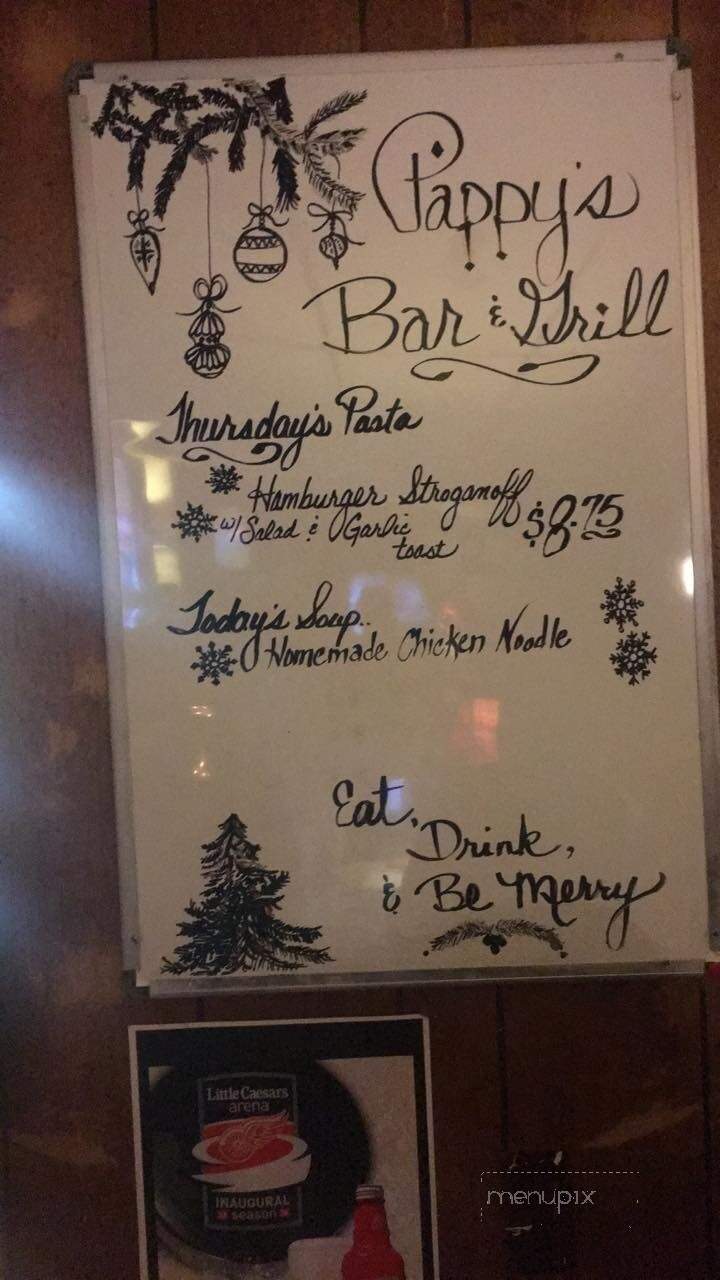 Pappy's
Bar & Grill
Thursday's Pasta
Hamburger Stroganoff
w/ Salad & Garlic
toast
$8.75
Today's Soup..
Homemade Chicken Noodle
Eat,
Drink,
& Be Merry
Little Caesars
arena
INAUGURAL
season
menupix